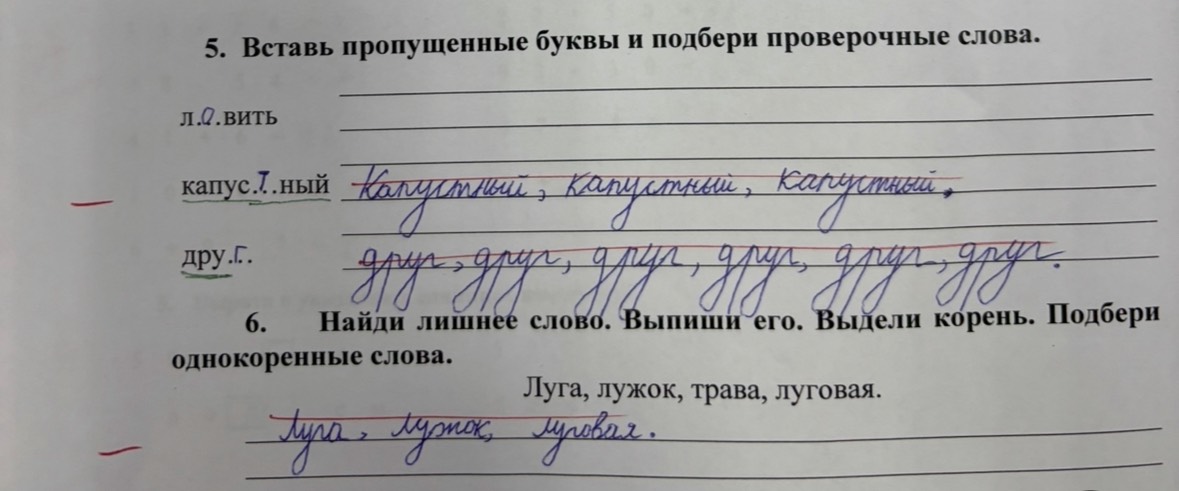 5. Вставь пропущенные буквы и подбери проверочные слова.
л.о.вить
капус.т.ный капустный, капустный, капустный.
дру.г. друг, друг, друг, друг, друг, друг.
6. Найди лишнее слово. Выпиши его. Выдели корень. Подбери
однокоренные слова.
Луга, лужок, трава, луговая.
Луга, лужок, луговая.